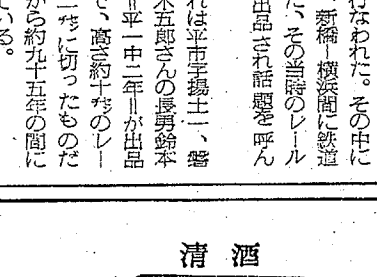 行なわれた。その中に
新橋―横浜間に鉄道
た、その当時のレール
出品され話題を呼ん
れは平市字揚土一、磐
木五郎さんの長男鈴木
＝平一中二年＝が出品
で、高さ約十㌢のレー
一㌢に切ったものだ
から約九十五年の間に
ている。
清酒